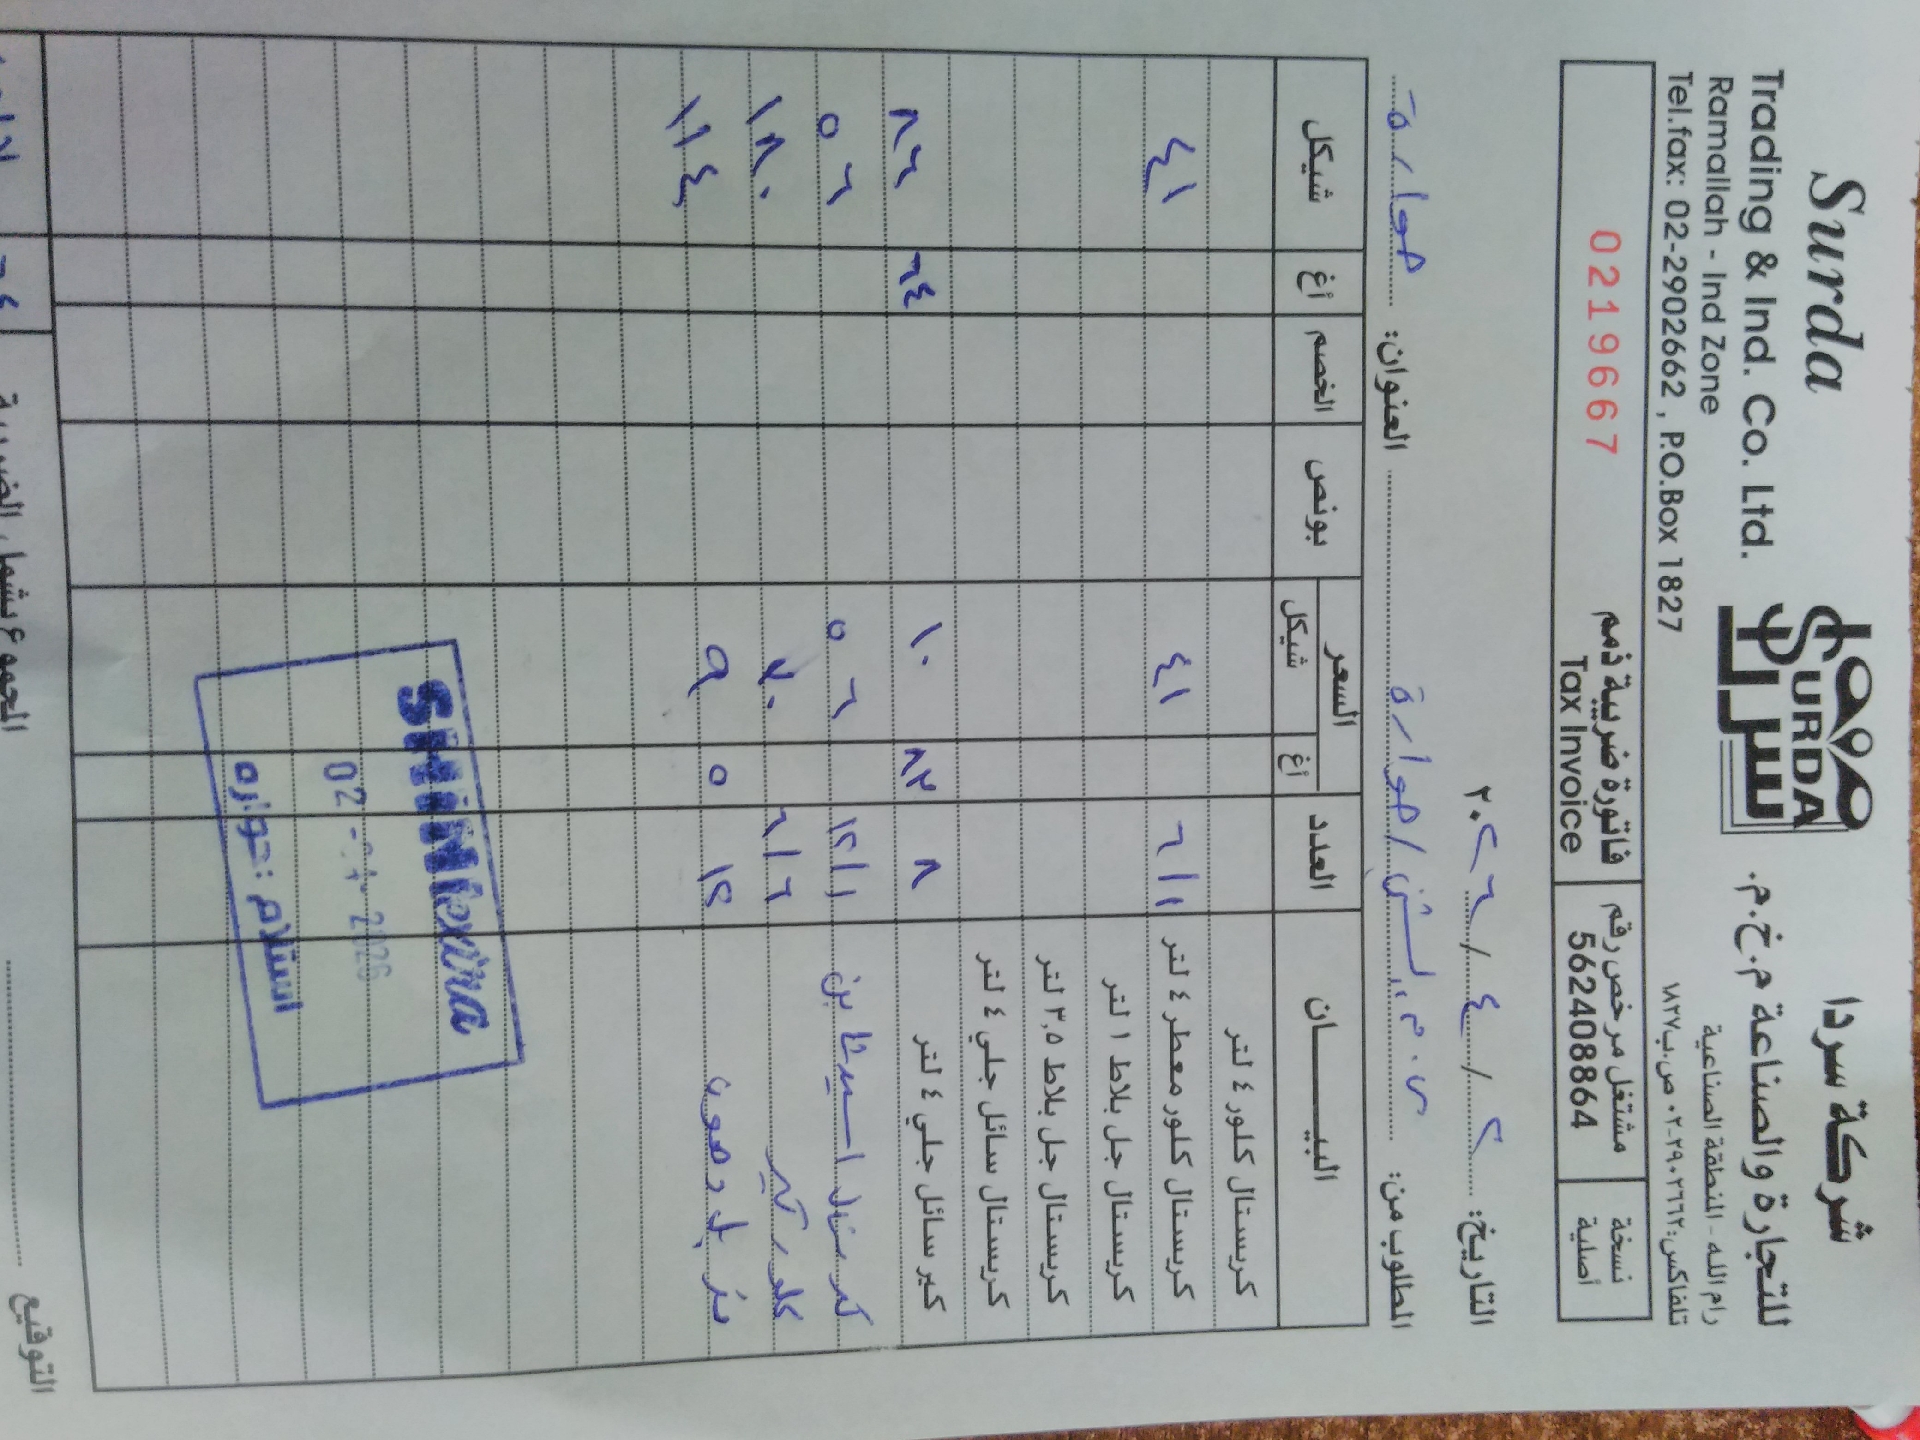 Surda
Trading & Ind. Co. Ltd.
Ramallah - Ind Zone
Tel.fax: 02-2902662 , P.O.Box 1827
SURDA
سردا
شركة سردا
للتجارة والصناعة م.خ.م.
رام الله - المنطقة الصناعية
تلفاكس: ٠٢-٢٩٠٢٦٦٢ ص.ب ١٨٢٧
0219667
فاتورة ضريبية ذمم
Tax Invoice
مشتغل مرخص رقم
562408864
نسخة
أصلية
التاريخ: ٢ / ٤ / ٢٠٢٦
المطلوب من: حوارة العنوان: حوارة
البيــــان العدد السعر شيكل أغ بونص الخصم أغ شيكل
كريستال كلور ٤ لتر
كريستال كلور معطر ٤ لتر ٦/١ ٤١ ٤١
كريستال جل بلاط ١ لتر
كريستال جل بلاط ٣,٥ لتر
كريستال سائل جلي ٤ لتر
كير سائل جلي ٤ لتر ٨ ٨٣ ١٠ ٦٤ ٨٦
١٢/١ ٥٦ ٥٦
كلور كير ٦/٦ ٣٠ ١٨٠
١٢ ٥ ٩ ١١٤
SHINiexira
02 2026
استلام : حواره
المجموع يشمل الضريبة
التوقيع